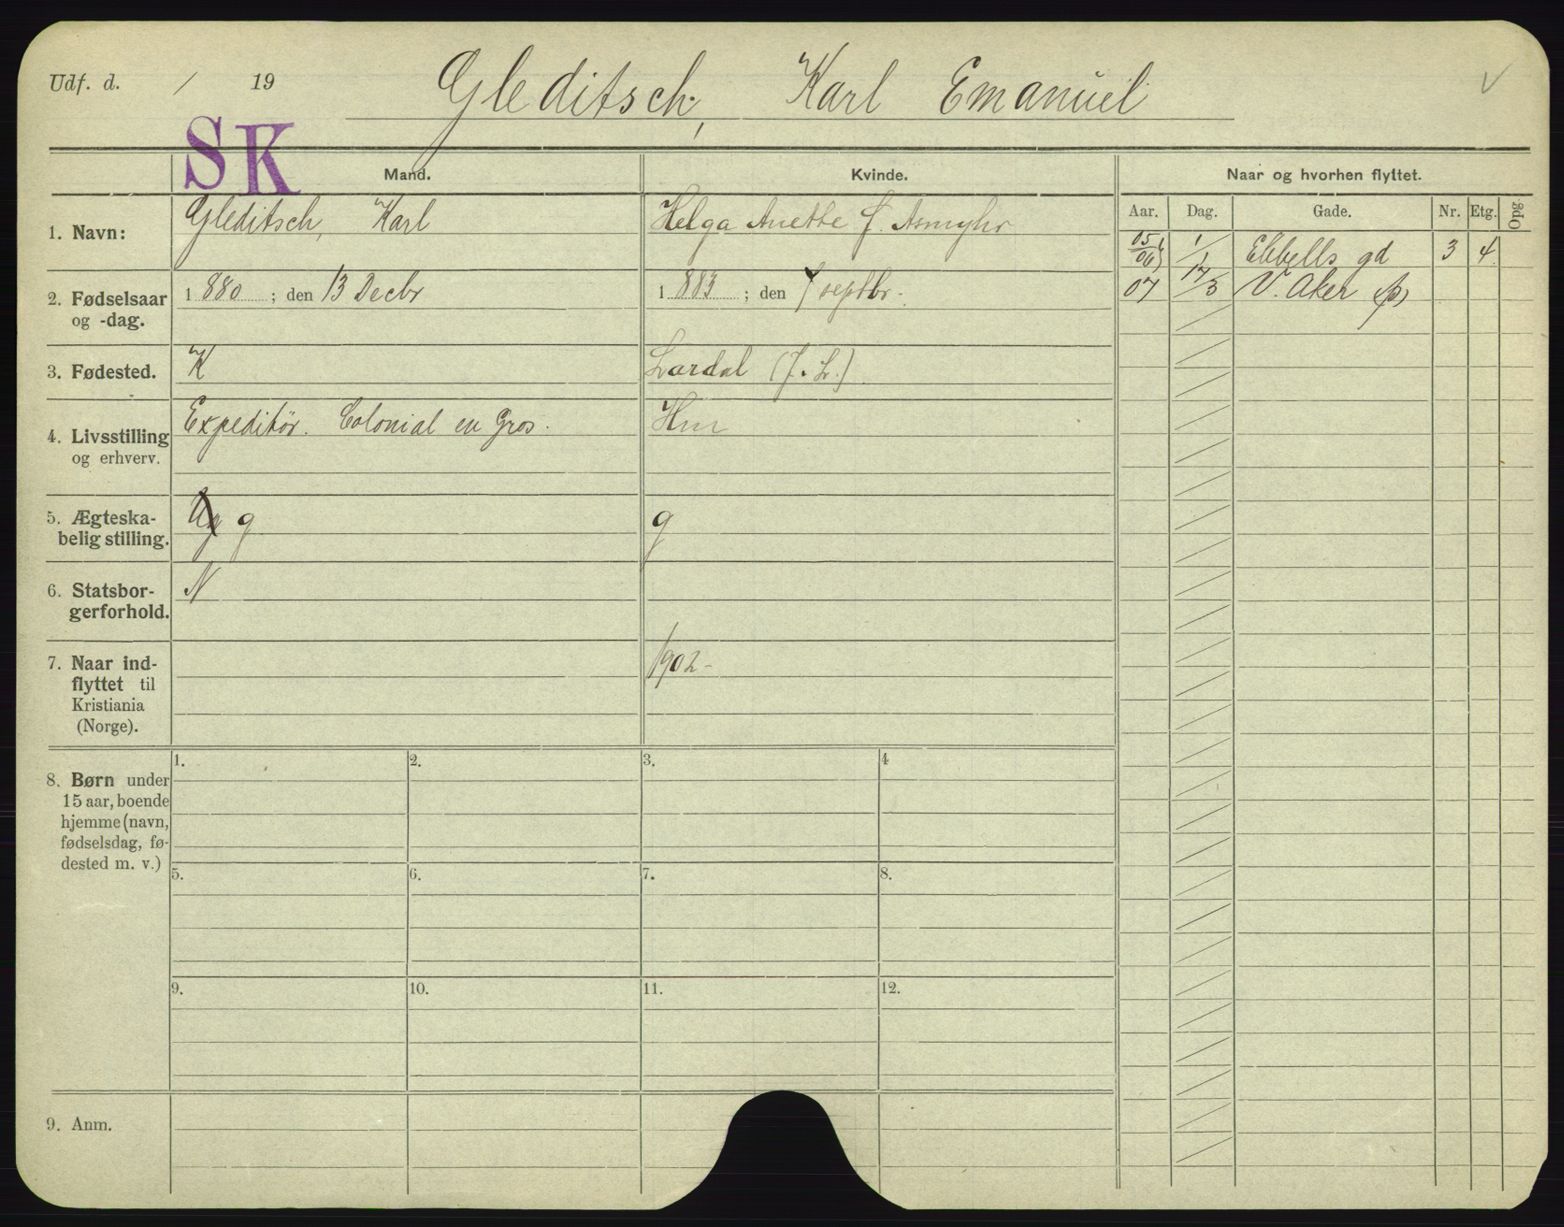 Udf. d. / 19
Gleditsch, Karl Emanuel
SK
Mand. Kvinde. Naar og hvorhen flyttet.
Aar. Dag. Gade. Nr. Etg. Opg
1. Navn: Gleditsch, Karl Helga Anette f. Asmyhr
05/06 1/1 Ebbells gd 3 4
2. Fødselsaar og -dag. 1880; den 13 Decbr 1883; den 7 septbr.
07 17/3 V. Aker (p)
3. Fødested. K Lardal (J. L.)
4. Livsstilling og erhverv. Expeditør. Colonial en Gros. Hm
5. Ægteska-
belig stilling. Ug g g
6. Statsbor-
gerforhold. N
7. Naar ind-
flyttet til
Kristiania
(Norge). 1902-
8. Børn under
15 aar, boende
hjemme (navn,
fødselsdag, fø-
dested m. v.)
1. 2. 3. 4
5. 6. 7. 8.
9. 10. 11. 12.
9. Anm.